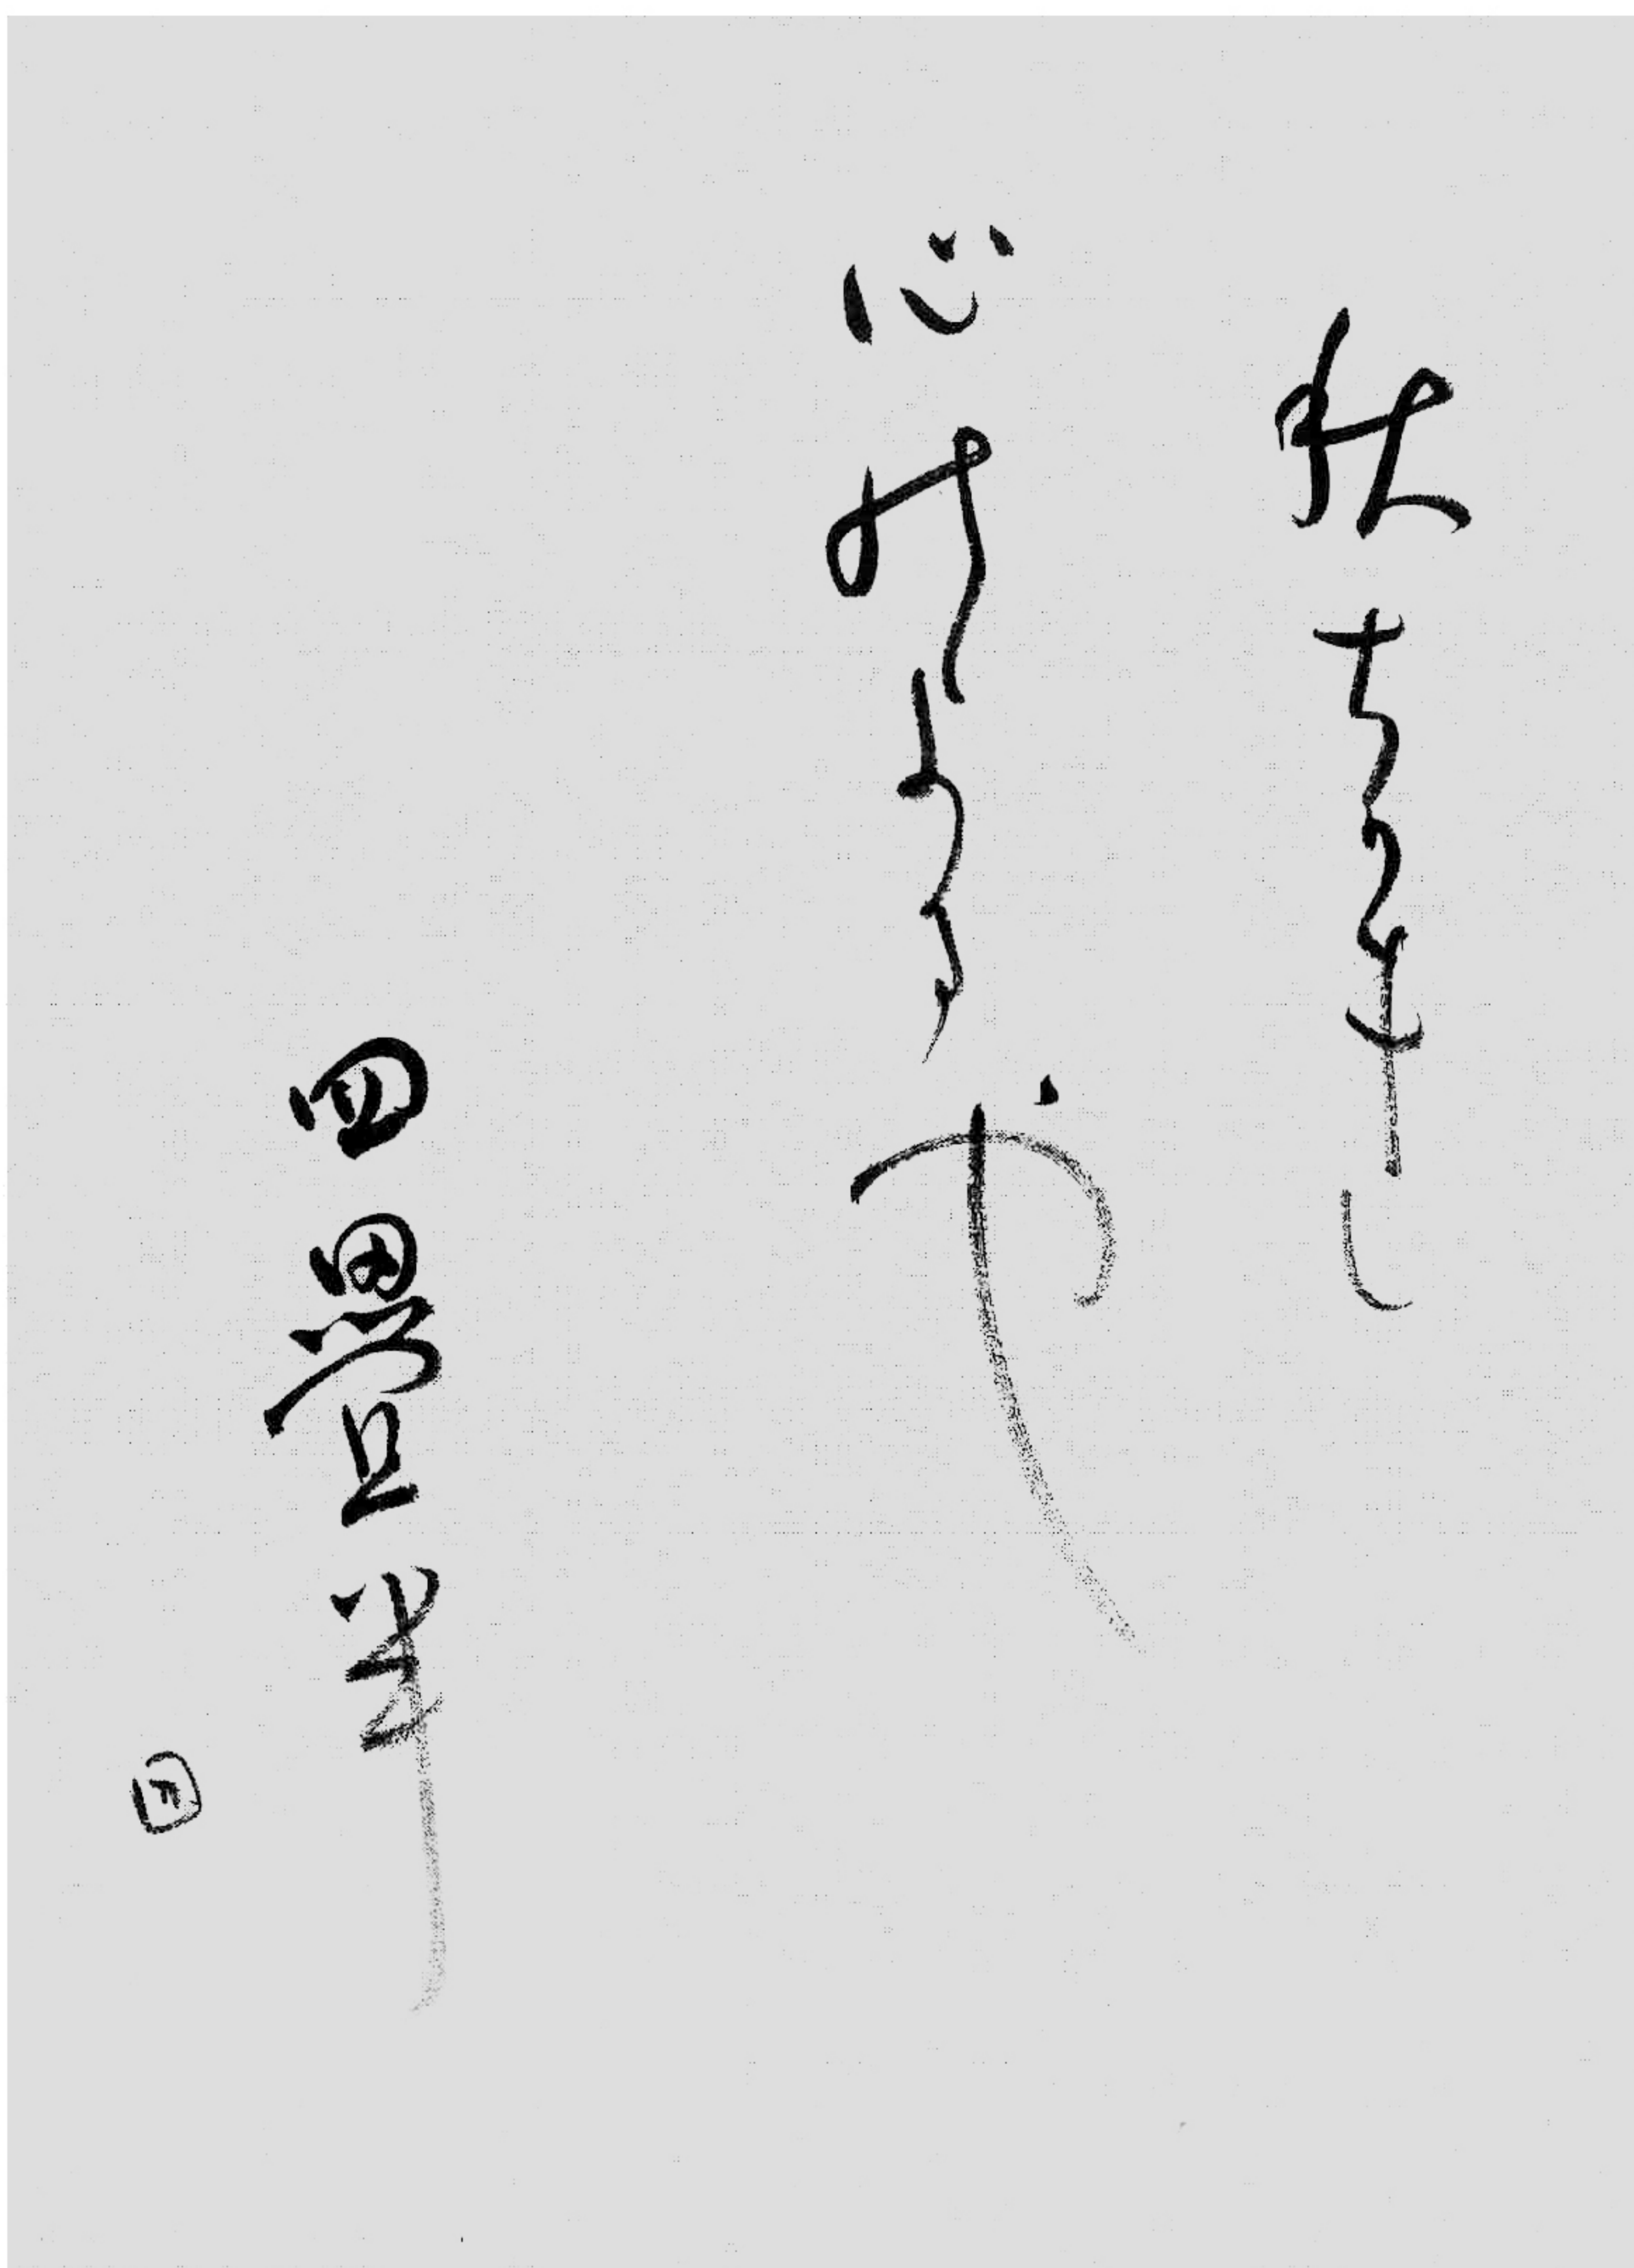 秋ちかき
心の寄るや
四畳半